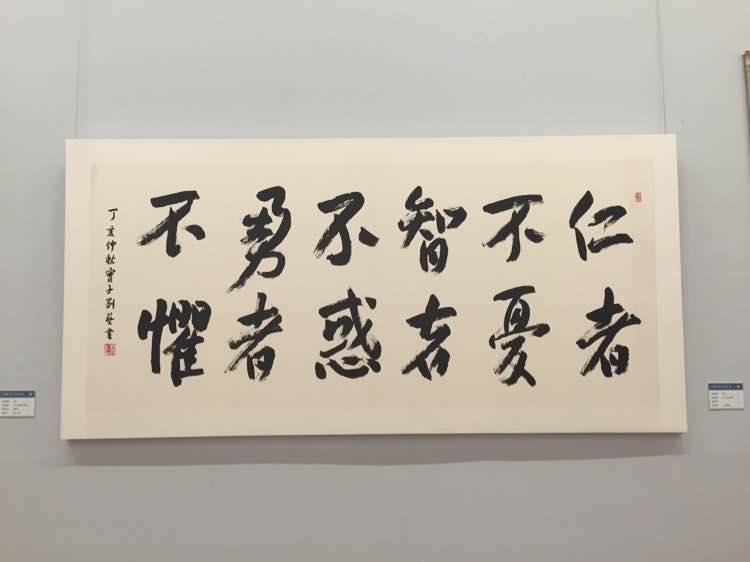 仁者
不憂
智者
不惑
勇者
不懼
丁亥仲秋寶子劉藝書